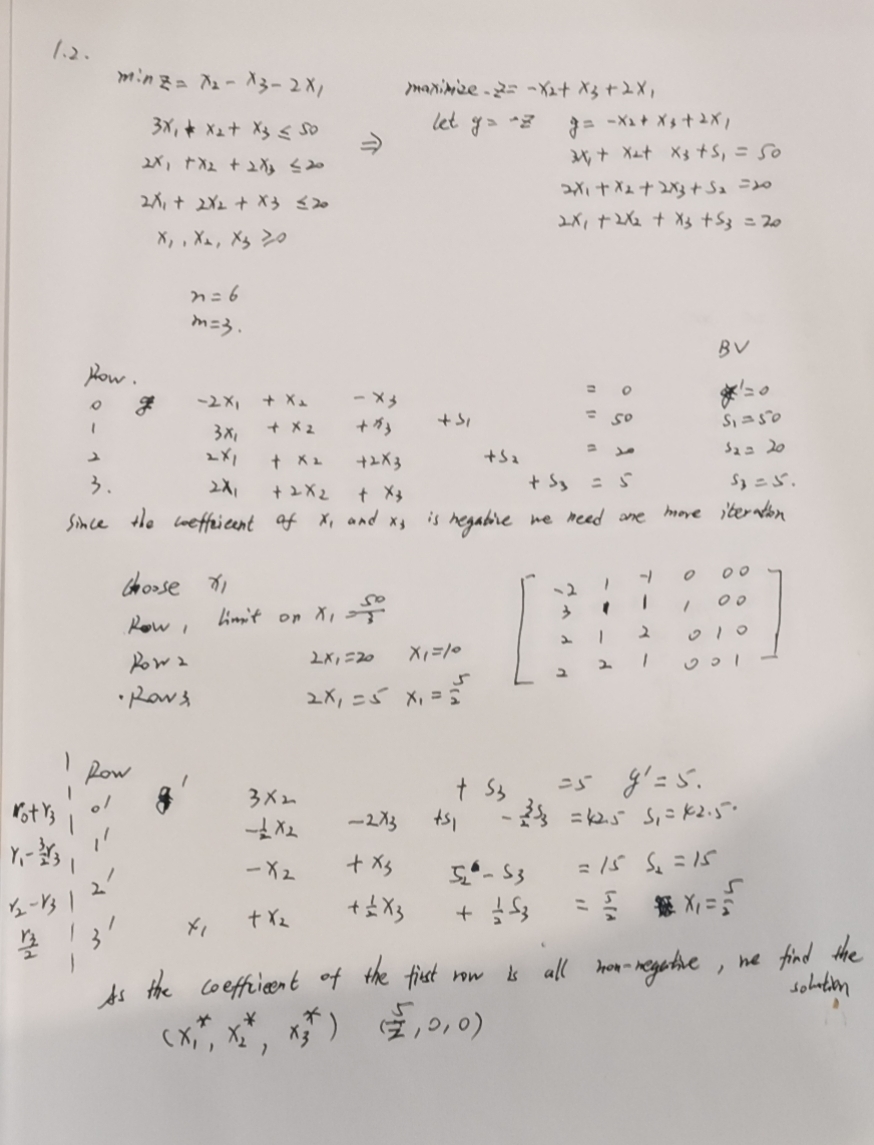 1.2.
min z = x₂ - x₃ - 2x₁ maximize -z = -x₂ + x₃ + 2x₁
3x₁ + x₂ + x₃ ≤ 50 ⇒ let g = -z g = -x₂ + x₃ + 2x₁
2x₁ + x₂ + 2x₃ ≤ 20 3x₁ + x₂ + x₃ + s₁ = 50
2x₁ + 2x₂ + x₃ ≤ 20 2x₁ + x₂ + 2x₃ + s₂ = 20
x₁, x₂, x₃ ≥ 0 2x₁ + 2x₂ + x₃ + s₃ = 20
n = 6
m = 3.
BV
Row.
0 g -2x₁ + x₂ - x₃ = 0 g' = 0
1 3x₁ + x₂ + x₃ + s₁ = 50 s₁ = 50
2 2x₁ + x₂ + 2x₃ + s₂ = 20 s₂ = 20
3. 2x₁ + 2x₂ + x₃ + s₃ = 5 s₃ = 5.
Since the coefficient of x₁ and x₃ is negative we need one more iteration
choose x₁
Row 1 limit on x₁ = 50/3
Row 2 2x₁ = 20 x₁ = 10
· Row 3 2x₁ = 5 x₁ = 5/2
-2 1 -1 0 0 0
3 1 1 1 0 0
2 1 2 0 1 0
2 2 1 0 0 1
Row
r₀+r₃ 0' g' 3x₂ + s₃ = 5 g' = 5.
r₁ - 3/2 r₃ 1' -½x₂ -2x₃ + s₁ - 3/2 s₃ = 42.5 s₁ = 42.5.
r₂ - r₃ 2' -x₂ + x₃ s₂ - s₃ = 15 s₂ = 15
r₃/2 3' x₁ + x₂ + ½x₃ + ½s₃ = 5/2 x₁ = 5/2
As the coefficient of the first row is all non-negative, we find the
solution
(x₁*, x₂*, x₃*) (5/2, 0, 0)